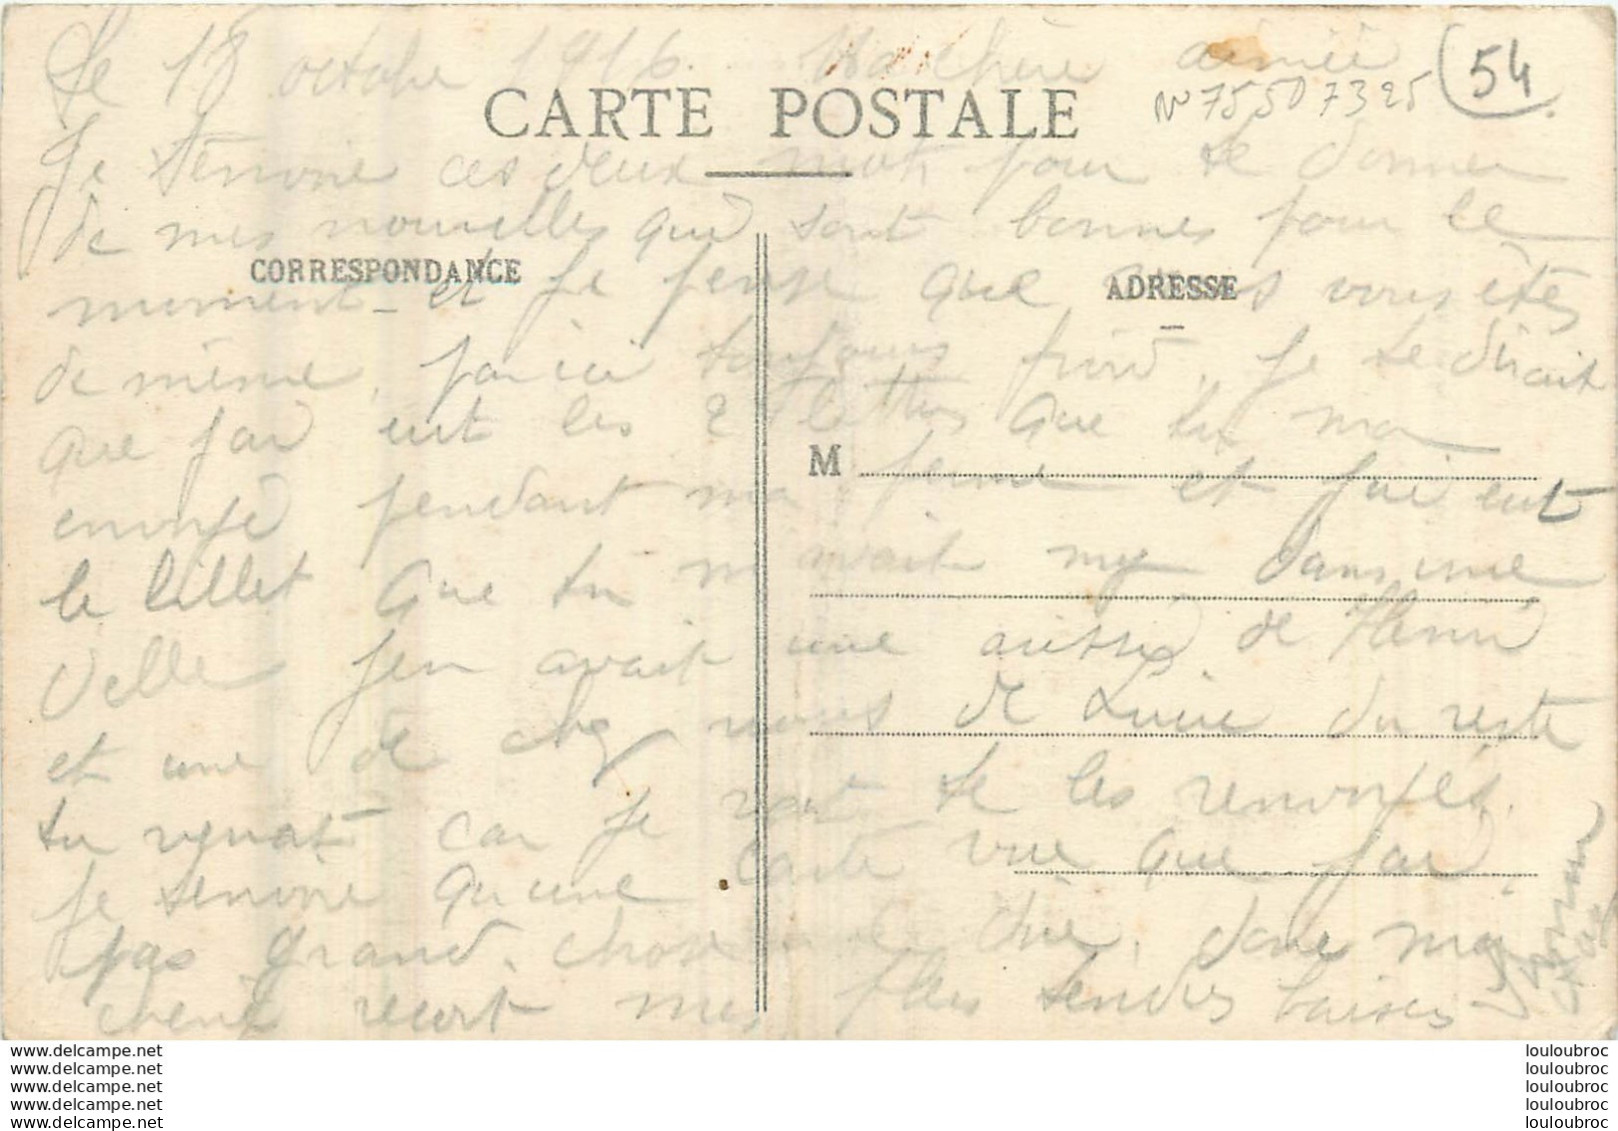 Le 18 octobre 1916. Ma chère aimée
54
N° 75507325
CARTE POSTALE
Je t'envoie ces deux mots pour te donner
de mes nouvelles qui sont bonnes pour le
CORRESPONDANCE
ADRESSE
moment et Je pense que vous êtes
de même. toujours froid. Je te dirait
que jai eut les 2 lettres que tu ma
M
envoyé pendant ma perme et jai eut
le billet que tu m'avait my dans une
delles jen avait une aussi de Henri
et une de chez nous de Lucie du reste
tu car je vait te les renvoyés.
Je t'envoie qu'une carte vue que jai
pas grand chose dire. donc ma
cherie recoit mes plus tendres baisers
www.delcampe.net
www.delcampe.net
www.delcampe.net
www.delcampe.net
www.delcampe.net
louloubroc
louloubroc
louloubroc
louloubroc
louloubroc